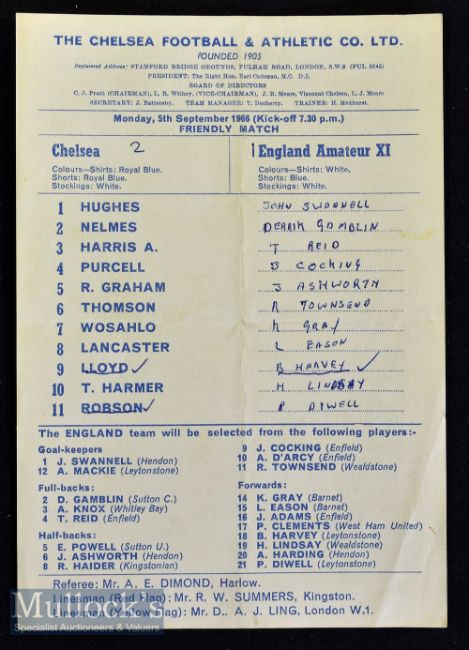 THE CHELSEA FOOTBALL & ATHLETIC CO. LTD.
FOUNDED 1905
Registered Address: STAMFORD BRIDGE GROUNDS, FULHAM ROAD, LONDON, S.W.6 (FUL 5545)
PRESIDENT: The Right Hon. Earl Cadogan, M.C. D.L
BOARD OF DIRECTORS
C. J. Pratt (CHAIRMAN), L. R. Withey, (VICE-CHAIRMAN), J. B. Mears, Viscount Chelsea, L. J. Mears
SECRETARY: J. Battersby. TEAM MANAGER: T. Docherty. TRAINER: H. Medhurst.
Monday, 5th September 1966 (Kick-off 7.30 p.m.)
FRIENDLY MATCH
Chelsea 2 1 England Amateur XI
Colours—Shirts: Royal Blue. Colours—Shirts: White.
Shorts: Royal Blue. Shorts: Blue.
Stockings: White. Stockings: White.
1 HUGHES JOHN SWANNELL
2 NELMES DERRIK GAMBLIN
3 HARRIS A. T REID
4 PURCELL J COCKING
5 R. GRAHAM J ASHWORTH
6 THOMSON R TOWNSEND
7 WOSAHLO K GRAY
8 LANCASTER L EASON
9 LLOYD ✓ B HARVEY ✓
10 T. HARMER H LINDSAY
11 ROBSON ✓ P DIWELL
The ENGLAND team will be selected from the following players:-
Goal-keepers
1 J. SWANNELL (Hendon)
12 A. MACKIE (Leytonstone)
Full-backs:
2 D. GAMBLIN (Sutton C.)
3 A. KNOX (Whitley Bay)
4 T. REID (Enfield)
Half-backs:
5 E. POWELL (Sutton U.)
6 J. ASHWORTH (Hendon)
8 R. HAIDER (Kingstonian)
9 J. COCKING (Enfield)
10 A. D'ARCY (Enfield)
11 R. TOWNSEND (Wealdstone)
Forwards:
14 K. GRAY (Barnet)
15 L. EASON (Barnet)
16 J. ADAMS (Enfield)
17 P. CLEMENTS (West Ham United)
18 B. HARVEY (Leytonstone)
19 H. LINDSAY (Wealdstone)
20 A. HARDING (Hendon)
21 P. DIWELL (Leytonstone)
Referee: Mr. A. E. DIMOND, Harlow.
Linesman (Red Flag): Mr. R. W. SUMMERS, Kingston.
Linesman (Yellow Flag): Mr. D.. A. J. LING, London W.1.
Mullock's
Specialist Auctioneers & Valuers